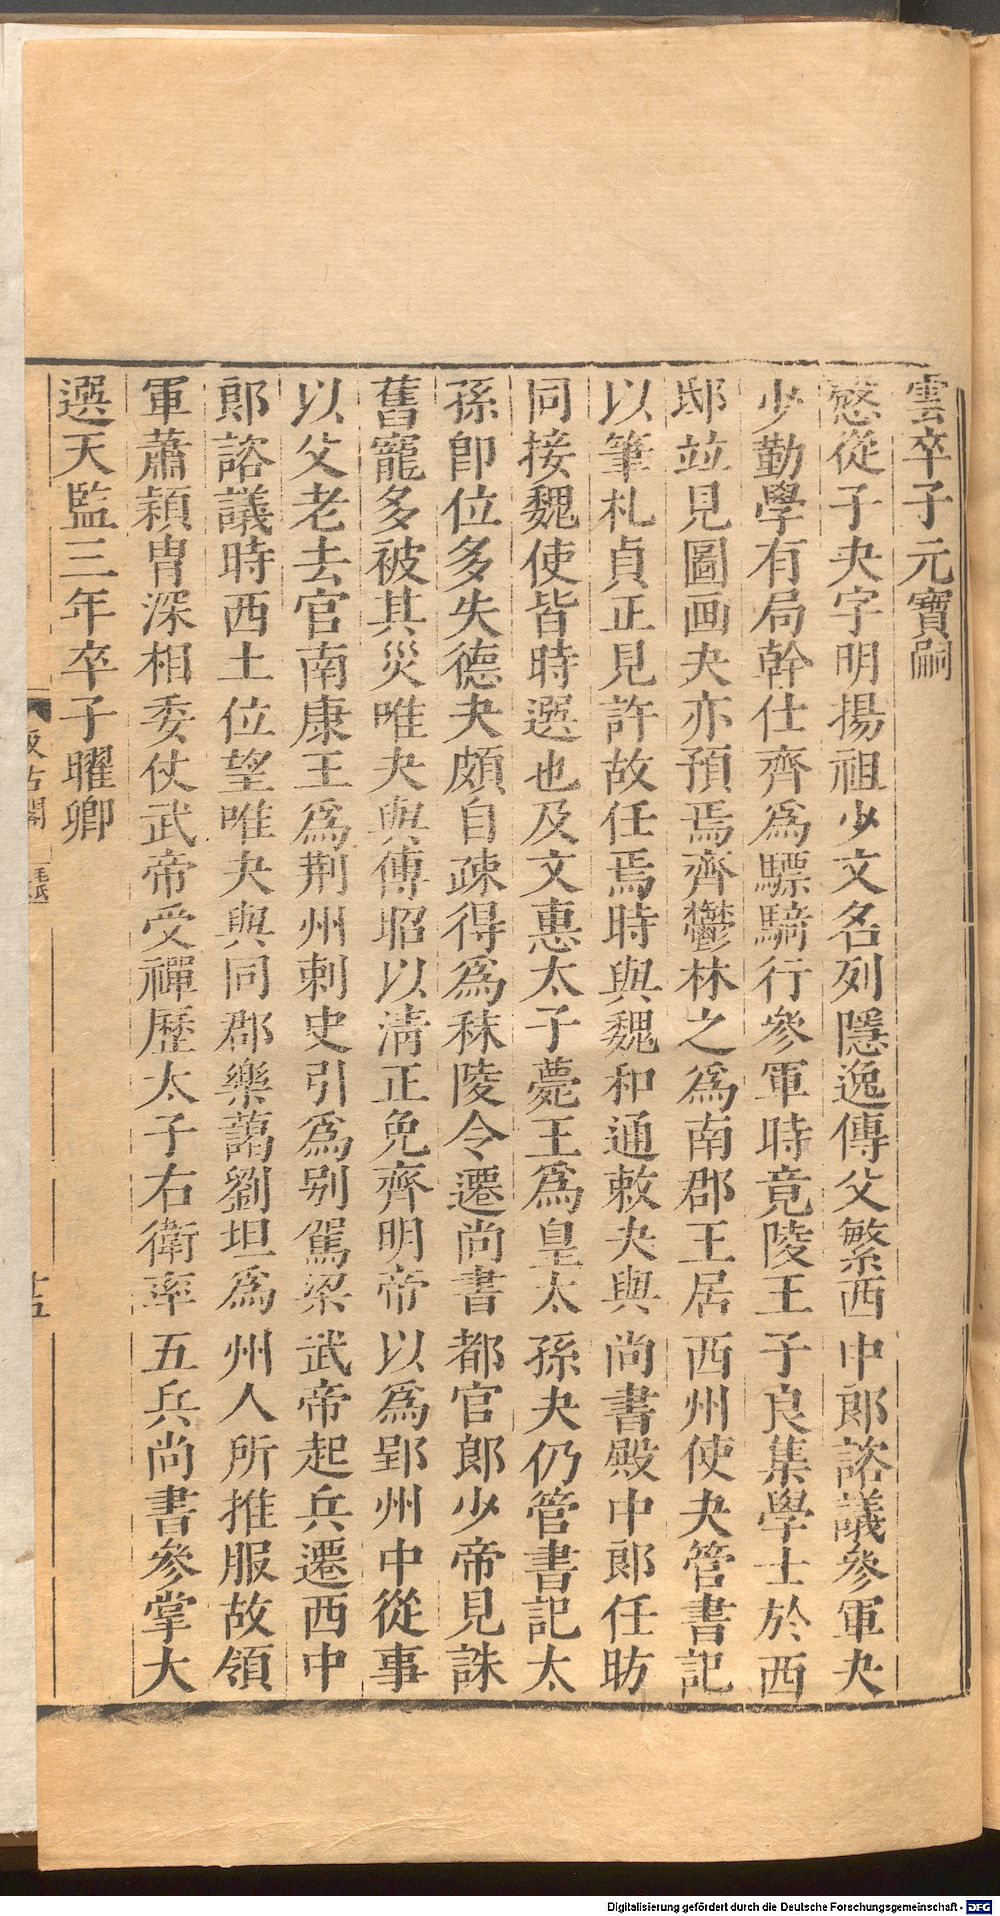 雲卒子元寶嗣
慤從子夬字明揚祖少文名列隱逸傳父繁西中郎諮議參軍夬
少勤學有局幹仕齊爲驃騎行參軍時竟陵王子良集學士於西
邸竝見圖画夬亦預焉齊鬱林之爲南郡王居西州使夬管書記
以筆札貞正見許故任焉時與魏和通敕夬與尚書殿中郎任昉
同接魏使皆時選也及文惠太子薨王爲皇太孫夬仍管書記太
孫卽位多失德夬頗自疎得爲秣陵令遷尚書都官郎少帝見誅
舊寵多被其災唯夬與傅昭以淸正免齊明帝以爲郢州中從事
以父老去官南康王爲荆州刺史引爲别駕梁武帝起兵遷西中
郎諮議時西土位望唯夬與同郡樂藹劉坦爲州人所推服故領
軍蕭穎冑深相委仗武帝受禪歷太子右衛率五兵尚書參掌大
選天監三年卒子曜卿
汲古閣
毛氏
十五
Digitalisierung gefördert durch die Deutsche Forschungsgemeinschaft - DFG